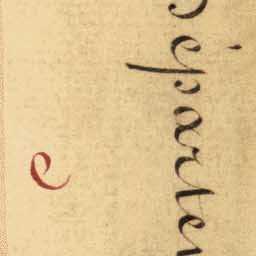 e
Départe